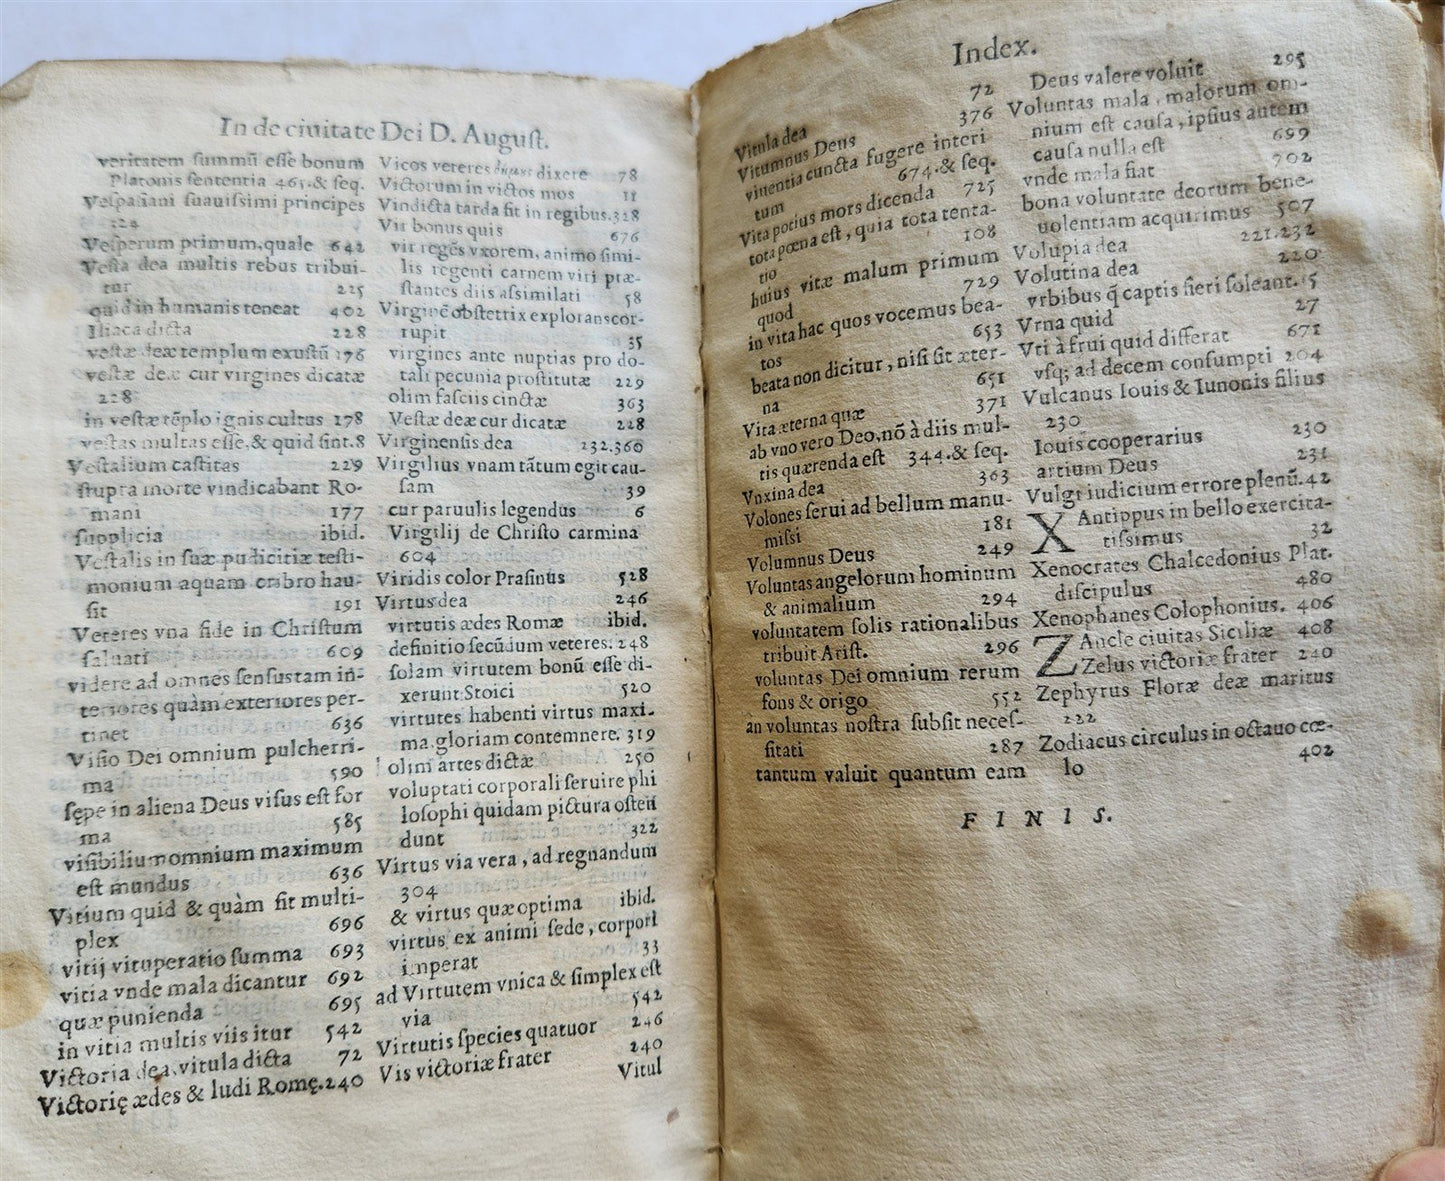 In de ciuitate Dei D. August.
veritatem summū esse bonum
Platonis sententia 465.& seq.
Vespasiani suauissimi principes
224
Vesperum primum, quale 642
Vesta dea multis rebus tribui-
tur 225
quid in humanis teneat 402
Iliaca dicta 228
vestæ deæ templum exustū 176
vestæ deæ cur virgines dicatæ
228
in vestæ tēplo ignis cultus 178
vestas multas esse, & quid sint. 8
Vestalium castitas 229
stupra morte vindicabant Ro-
mani 177
supplicia ibid.
Vestalis in suæ pudicitiæ testi-
monium aquam cribro hau-
sit 191
Veteres vna fide in Christum
saluati 609
videre ad omnes sensus tam in-
teriores quàm exteriores per-
tinet 636
Visio Dei omnium pulcherri-
ma 590
sępe in aliena Deus visus est for
ma 585
visibilium omnium maximum
est mundus 636
Vitium quid & quàm sit multi-
plex 696
vitij vituperatio summa 693
vitia vnde mala dicantur 692
quæ punienda 695
in vitia multis viis itur 542
Victoria dea, vitula dicta 72
Victorię ædes & ludi Romę. 240
Vicos veteres dixere 78
Victorum in victos mos 11
Vindicta tarda fit in regibus. 328
Vir bonus quis 676
vir regēs vxorem, animo simi-
lis regenti carnem viri præ-
stantes diis assimilati 58
Virginē obstetrix explorans cor-
rupit 35
virgines ante nuptias pro do-
tali pecunia prostitutæ 229
olim fasciis cinctæ 363
Vestæ deæ cur dicatæ 228
Virginensis dea 232.360
Virgilius vnam tātum egit cau-
sam 39
cur paruulis legendus 6
Virgilij de Christo carmina
604
Viridis color Prasinus 528
Virtus dea 246
virtutis ædes Romæ ibid.
definitio secūdum veteres. 248
solam virtutem bonū esse di-
xerunt Stoici 520
virtutes habenti virtus maxi-
ma, gloriam contemnere. 319
olim artes dictæ 250
voluptati corporali seruire phi
losophi quidam pictura osten
dunt 322
Virtus via vera, ad regnandum
304
& virtus quæ optima ibid.
virtus ex animi sede, corpori
imperat 33
ad Virtutem vnica & simplex est
via 542
Virtutis species quatuor 246
Vis victoriæ frater 240
Vitul
Index.
Vitula dea 72
Vitumnus Deus 376
viuentia cuncta fugere interi
tum 674.& seq.
Vita potius mors dicenda 725
tota pœna est, quia tota tenta-
tio 108
huius vitæ malum primum
quod 729
in vita hac quos vocemus bea-
tos 653
beata non dicitur, nisi sit æter-
na 651
Vita æterna quæ 371
ab vno vero Deo, nō à diis mul-
tis quærenda est 344.& seq.
Vnxina dea 363
Volones serui ad bellum manu-
missi 181
Volumnus Deus 249
Voluntas angelorum hominum
& animalium 294
voluntatem solis rationalibus
tribuit Arist. 296
voluntas Dei omnium rerum
fons & origo 552
an voluntas nostra subsit neces-
sitati 287
tantum valuit quantum eam
Deus valere voluit 295
Voluntas mala, malorum om-
nium est causa, ipsius autem
causa nulla est 699
vnde mala fiat 702
bona voluntate deorum bene-
uolentiam acquirimus 507
Volupia dea 221.232
Volutina dea 220
vrbibus q̃ captis fieri soleant. 5
Vrna quid 27
Vti à frui quid differat 671
vsq; ad decem consumpti 204
Vulcanus Iouis & Iunonis filius
230
Iouis cooperarius 230
artium Deus 231
Vulgi iudicium errore plenū. 42
XAntippus in bello exercita-
tissimus 32
Xenocrates Chalcedonius Plat.
discipulus 480
Xenophanes Colophonius. 406
ZAncle ciuitas Siciliæ 408
Zelus victoriæ frater 240
Zephyrus Floræ deæ maritus
222
Zodiacus circulus in octauo cœ-
lo 402
FINIS.